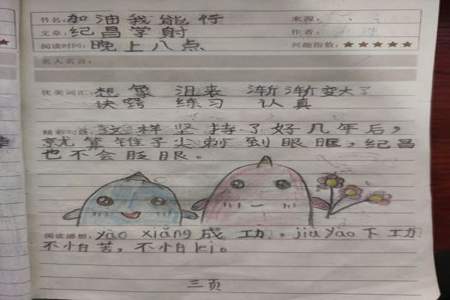 书名:加油我能行
来源:
文章:纪昌学射
作者:
阅读时间:晚上八点
兴趣指数:★★★★★
名人名言:
优美词汇:想象 沮丧 渐渐变大了
诀窍 练习 认真
精彩句段:这样坚持了好几年后,
就算锥子尖刺到眼眶,纪昌
也不会眨眼。
阅读感想:yào xiǎng成功。jiù yào下功
不怕苦,不怕ku。
三页